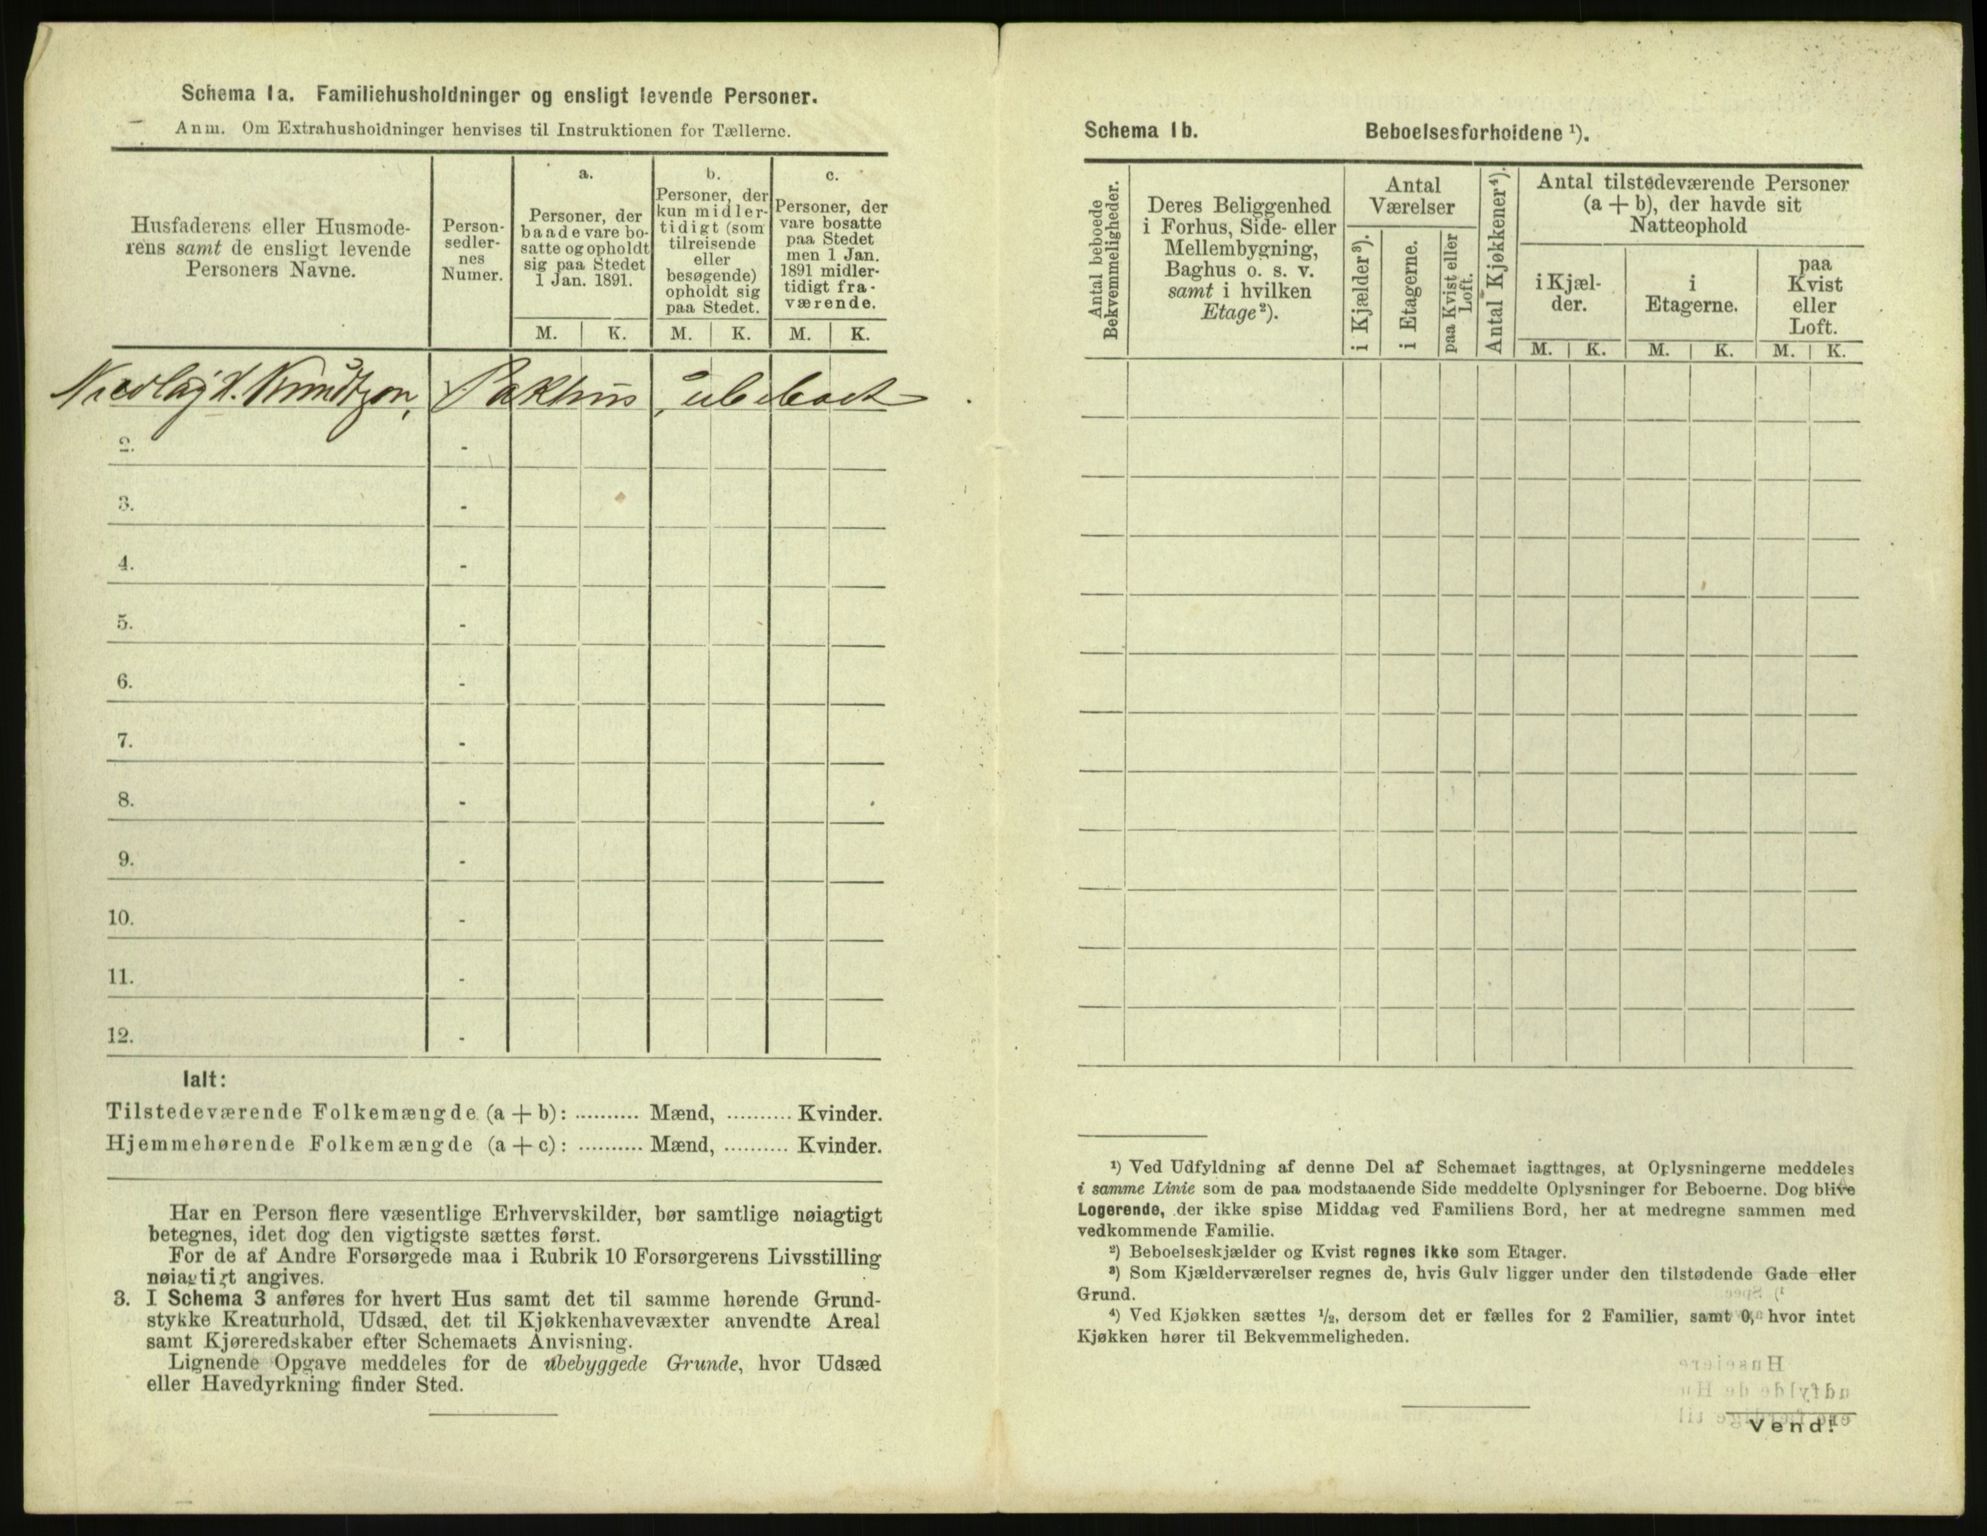 Schema 1a. Familiehusholdninger og ensligt levende Personer.
Anm. Om Extrahusholdninger henvises til Instruktionen for Tællerne.
Husfaderens eller Husmode-
rens samt de ensligt levende
Personers Navne.
Person-
sedler-
nes
Numer.
a.
Personer, der
baade vare bo-
satte og opholdt
sig paa Stedet
1 Jan. 1891.
b.
Personer, der
kun midler-
tidigt (som
tilreisende
eller
besøgende)
opholdt sig
paa Stedet.
c.
Personer, der
vare bosatte
paa Stedet
men 1 Jan.
1891 midler-
tidigt fra-
værende.
M. K. M. K. M. K.
Nicolay H. Knudtzon, Pakhus, ubeboet
2. -
3. -
4. -
5. -
6. -
7. -
8. -
9. -
10. -
11. -
12. -
Ialt:
Tilstedeværende Folkemængde (a + b): .......... Mænd, .......... Kvinder.
Hjemmehørende Folkemængde (a + c): .......... Mænd, .......... Kvinder.
Har en Person flere væsentlige Erhvervskilder, bør samtlige nøiagtigt
betegnes, idet dog den vigtigste sættes først.
For de af Andre Forsørgede maa i Rubrik 10 Forsørgerens Livsstilling
nøiagtigt angives.
3. I Schema 3 anføres for hvert Hus samt det til samme hørende Grund-
stykke Kreaturhold, Udsæd, det til Kjøkkenhavevæxter anvendte Areal
samt Kjøreredskaber efter Schemaets Anvisning.
Lignende Opgave meddeles for de ubebyggede Grunde, hvor Udsæd
eller Havedyrkning finder Sted.
Schema 1b. Beboelsesforholdene ¹).
Antal beboede
Bekvemmeligheder.
Deres Beliggenhed
i Forhus, Side- eller
Mellembygning,
Baghus o. s. v.
samt i hvilken
Etage²).
Antal
Værelser
i Kjælder³).
i Etagerne.
paa Kvist eller
Loft.
Antal Kjøkkener⁴).
Antal tilstedeværende Personer
(a + b), der havde sit
Natteophold
i Kjæl-
der.
i
Etagerne.
paa
Kvist
eller
Loft.
M. K. M. K. M. K.
¹) Ved Udfyldning af denne Del af Schemaet iagttages, at Oplysningerne meddeles
i samme Linie som de paa modstaaende Side meddelte Oplysninger for Beboerne. Dog blive
Logerende, der ikke spise Middag ved Familiens Bord, her at medregne sammen med
vedkommende Familie.
²) Beboelseskjælder og Kvist regnes ikke som Etager.
³) Som Kjælderværelser regnes de, hvis Gulv ligger under den tilstødende Gade eller
Grund.
⁴) Ved Kjøkken sættes ½, dersom det er fælles for 2 Familier, samt 0, hvor intet
Kjøkken hører til Bekvemmeligheden.
Vend!